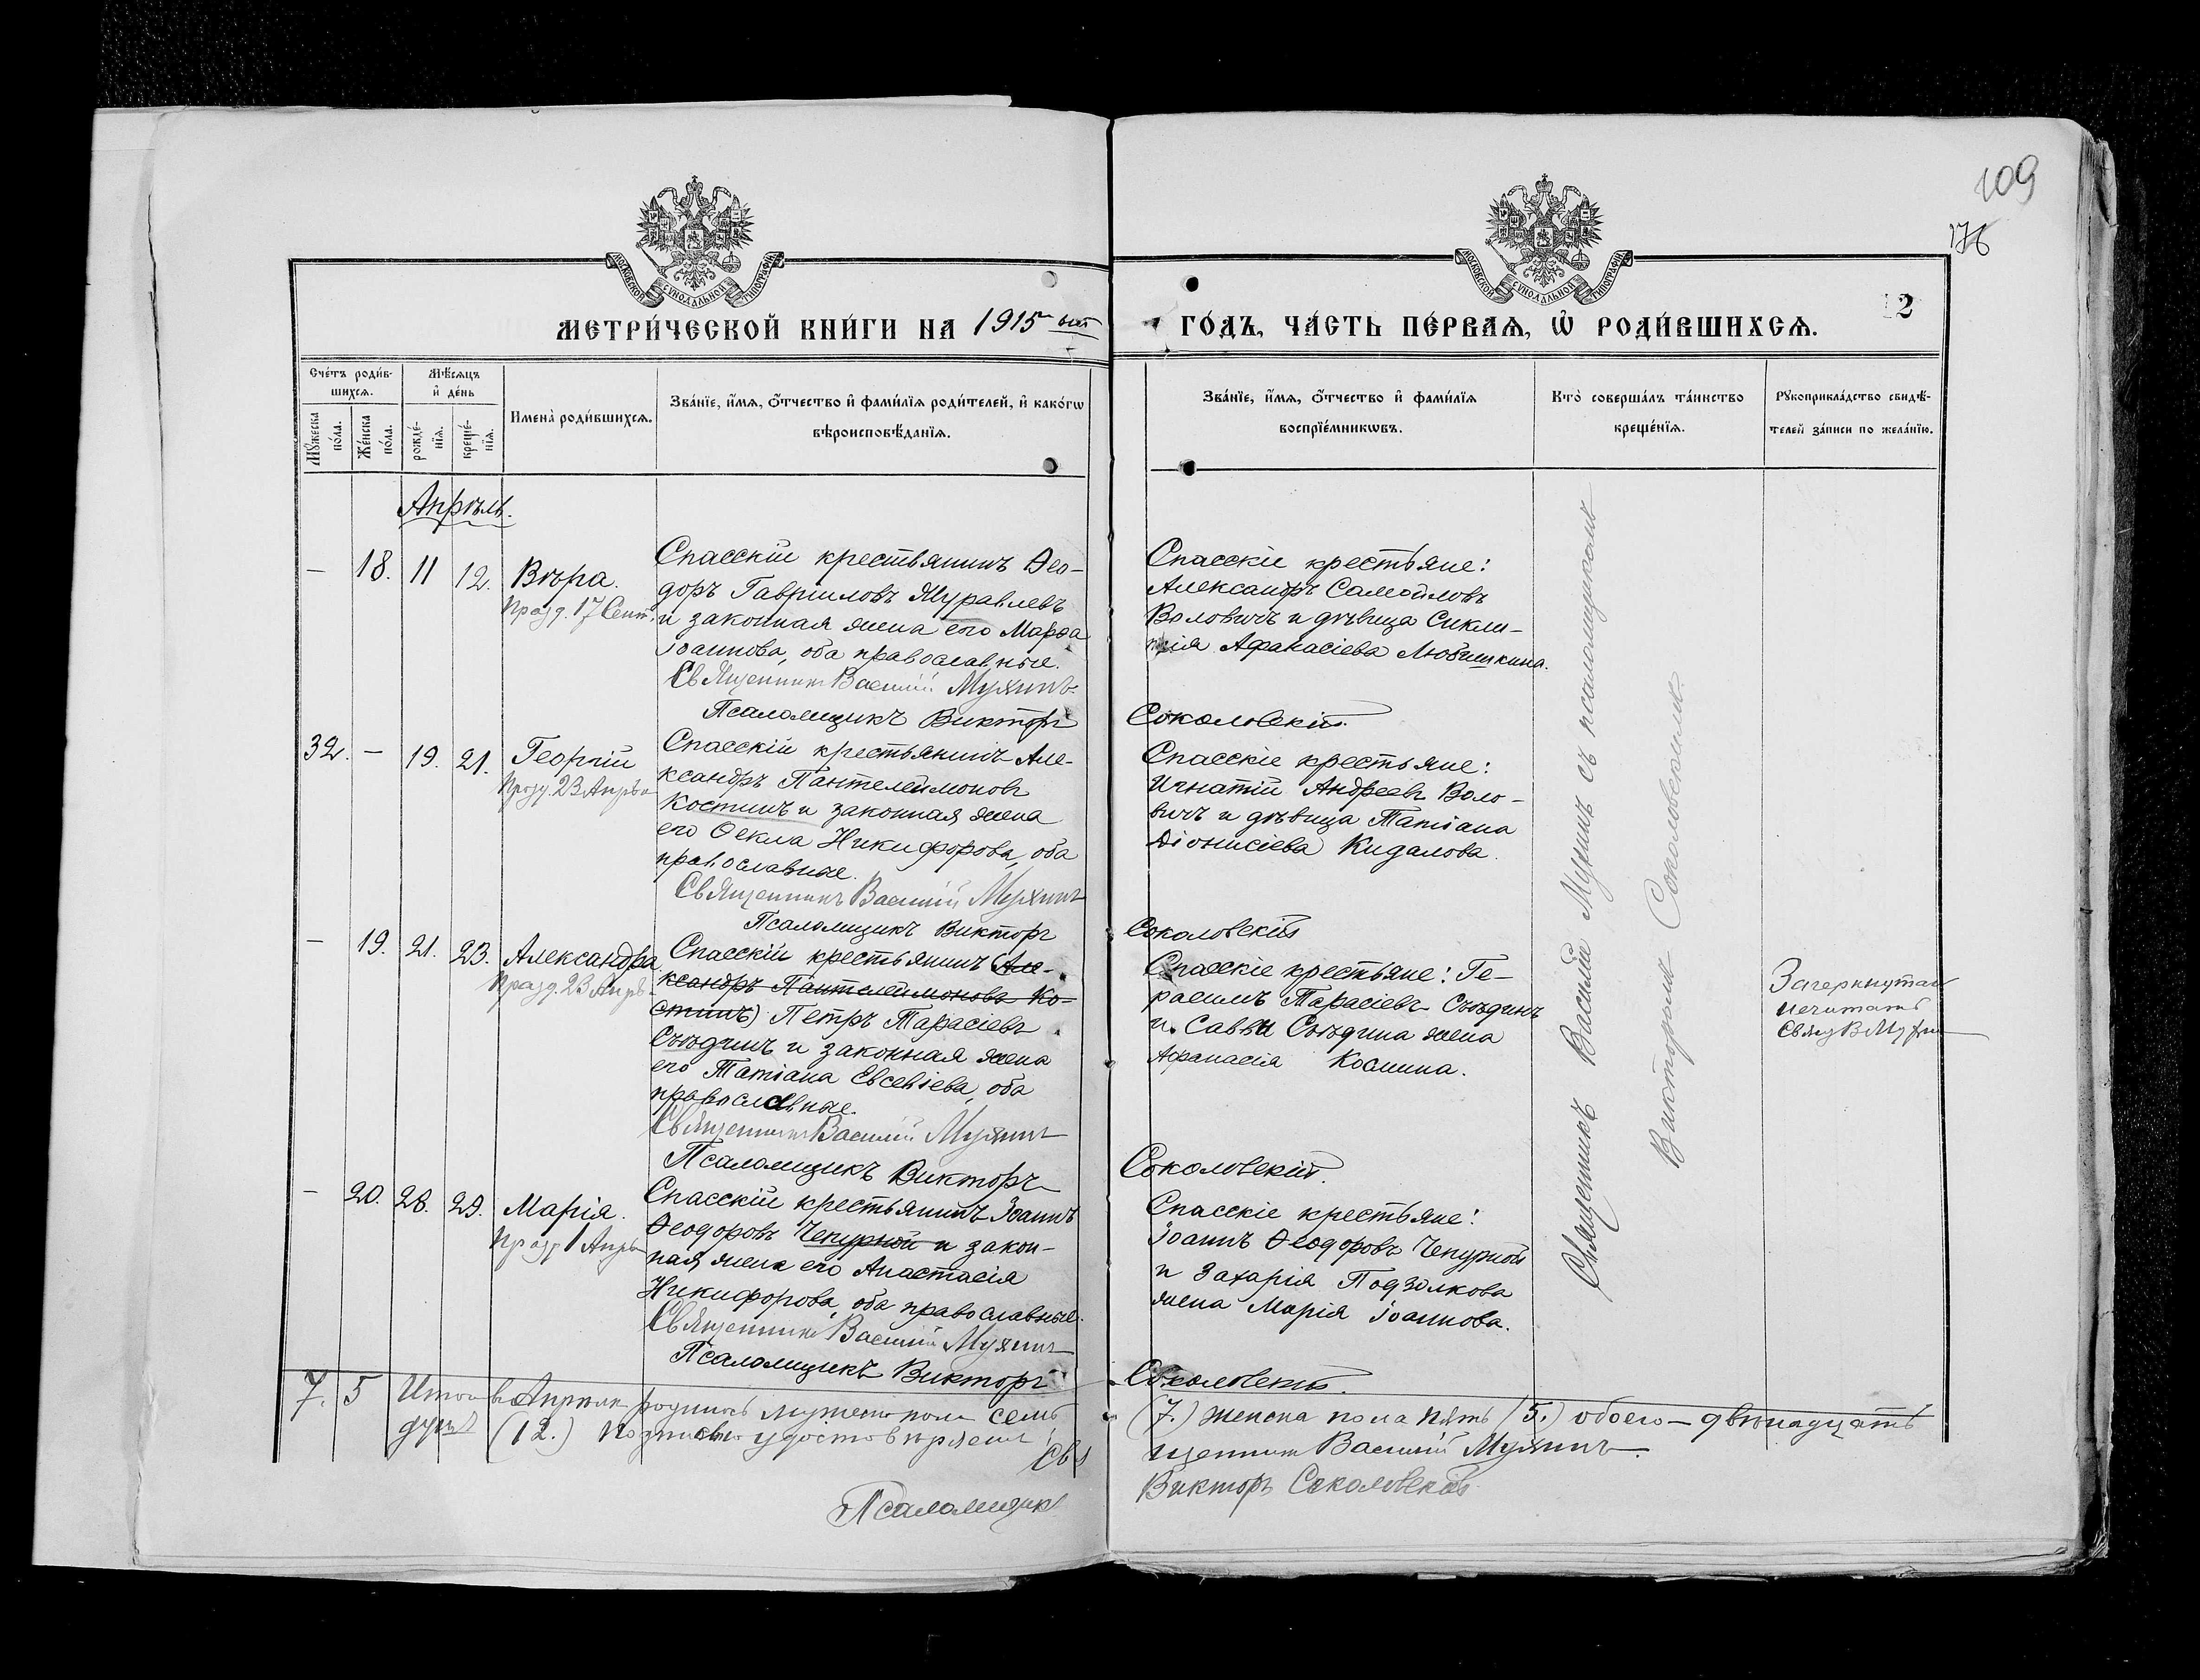 109
176
МОСКОВСКОЙ СѴНОДАЛЬНОЙ ТИПОГРАФІИ
МОСКОВСКОЙ СѴНОДАЛЬНОЙ ТИПОГРАФІИ
МЕТРИ́ЧЕСКОЙ КНИ́ГИ НА 1915 ый
ГО́ДЪ, ЧА́СТЬ ПЕ́РВАѦ, Ѽ РОДИ́ВШИХСѦ.
2
Сче́тъ роди́в-
шихсѧ.
Мꙋ́жеска
по́ла.
Же́нска
по́ла.
Мѣ́сѧцъ
и҆ де́нь
рожде́-
нїѧ.
креще́-
нїѧ.
Имена̀ роди́вшихсѧ.
Зва́нїе, и҆́мѧ, ѻ҆́тчество и҆ фами́лїѧ роди́телей, и҆ како́гѡ
вѣроисповѣ́данїѧ.
Зва́нїе, и҆́мѧ, ѻ҆́тчество и҆ фами́лїѧ
воспрїе́мникѡвъ.
Кто̀ соверша́лъ та́инство
креще́нїѧ.
Рꙋкоприкла́дство свидѣ́-
телей за́писи по жела́нїю.
Апрѣль.
— 18. 11 12. Вѣра.
Празд. 17 Сент.
Спасскій крестьянинъ Ѳео-
доръ Гавріиловъ Муравлевъ
и законная жена его Марѳа
Іоаннова, оба православные.
Священникъ Василій Мухинъ
Псаломщикъ Викторъ
Спасскіе крестьяне:
Александръ Самойловъ
Воловичъ и дѣвица Сикли-
Афанасіева Любишкина.
Соколовскій.
32. — 19. 21. Георгій
Празд. 23 Апрѣл
Спасскій крестьянинъ Але-
ксандръ Пантелеймоновъ
Костинъ и законная жена
его Ѳекла Никифорова, оба
православные.
Священникъ Василій Мухинъ
Псаломщикъ Викторъ
Спасскіе крестьяне:
Игнатій Андреевъ Воло-
вичъ и дѣвица Татіана
Діонисіева Кидалова.
Соколовскій
— 19. 21. 23. Александра
Празд. 23 Апрѣ
Спасскій крестьянинъ (Але-
ксандръ Пантелеймоновъ Ко-
стинъ) Петръ Тарасіевъ
Съѣдинъ и законная жена
его Татіана Евсевіева, оба
православные.
Священникъ Василій Мухинъ
Псаломщикъ Викторъ
Спасскіе крестьяне: Ге-
расимъ Тарасіевъ Съѣдинъ
и Саввы Съѣдина жена
Афанасія Космина.
Соколовскій.
Зачеркнутаго
нечитать
Свящ В Мухин
— 20. 28. 29. Марія.
Празд 1 Апрѣ
Спасскій крестьянинъ Іоаннъ
Ѳеодоровъ Чепурной и закон-
ная жена его Анастасія
Никифорова, оба православные.
Священникъ Василій Мухинъ
Псаломщикъ Викторъ
Спасскіе крестьяне:
Іоаннъ Ѳеодоровъ Чепурной
и Захарія Подзолкова
жена Марія Іоаннова.
Соколовскій.
Священникъ Василій Мухинъ съ псаломщикомъ
Викторомъ Соколовскимъ.
7. 5 Итого въ Апрѣлѣ родилось мужеска пола семь (7.) женска пола пять (5.) обоего — двѣнадцать
душъ (12.) подписью удостовѣряемъ: Священникъ Василій Мухинъ.
Псаломщикъ Викторъ Соколовскій